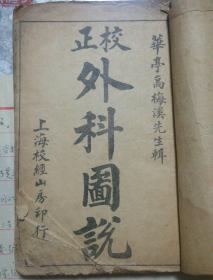 華亭高梅溪先生輯
校正
外科圖說
上海校經山房印行